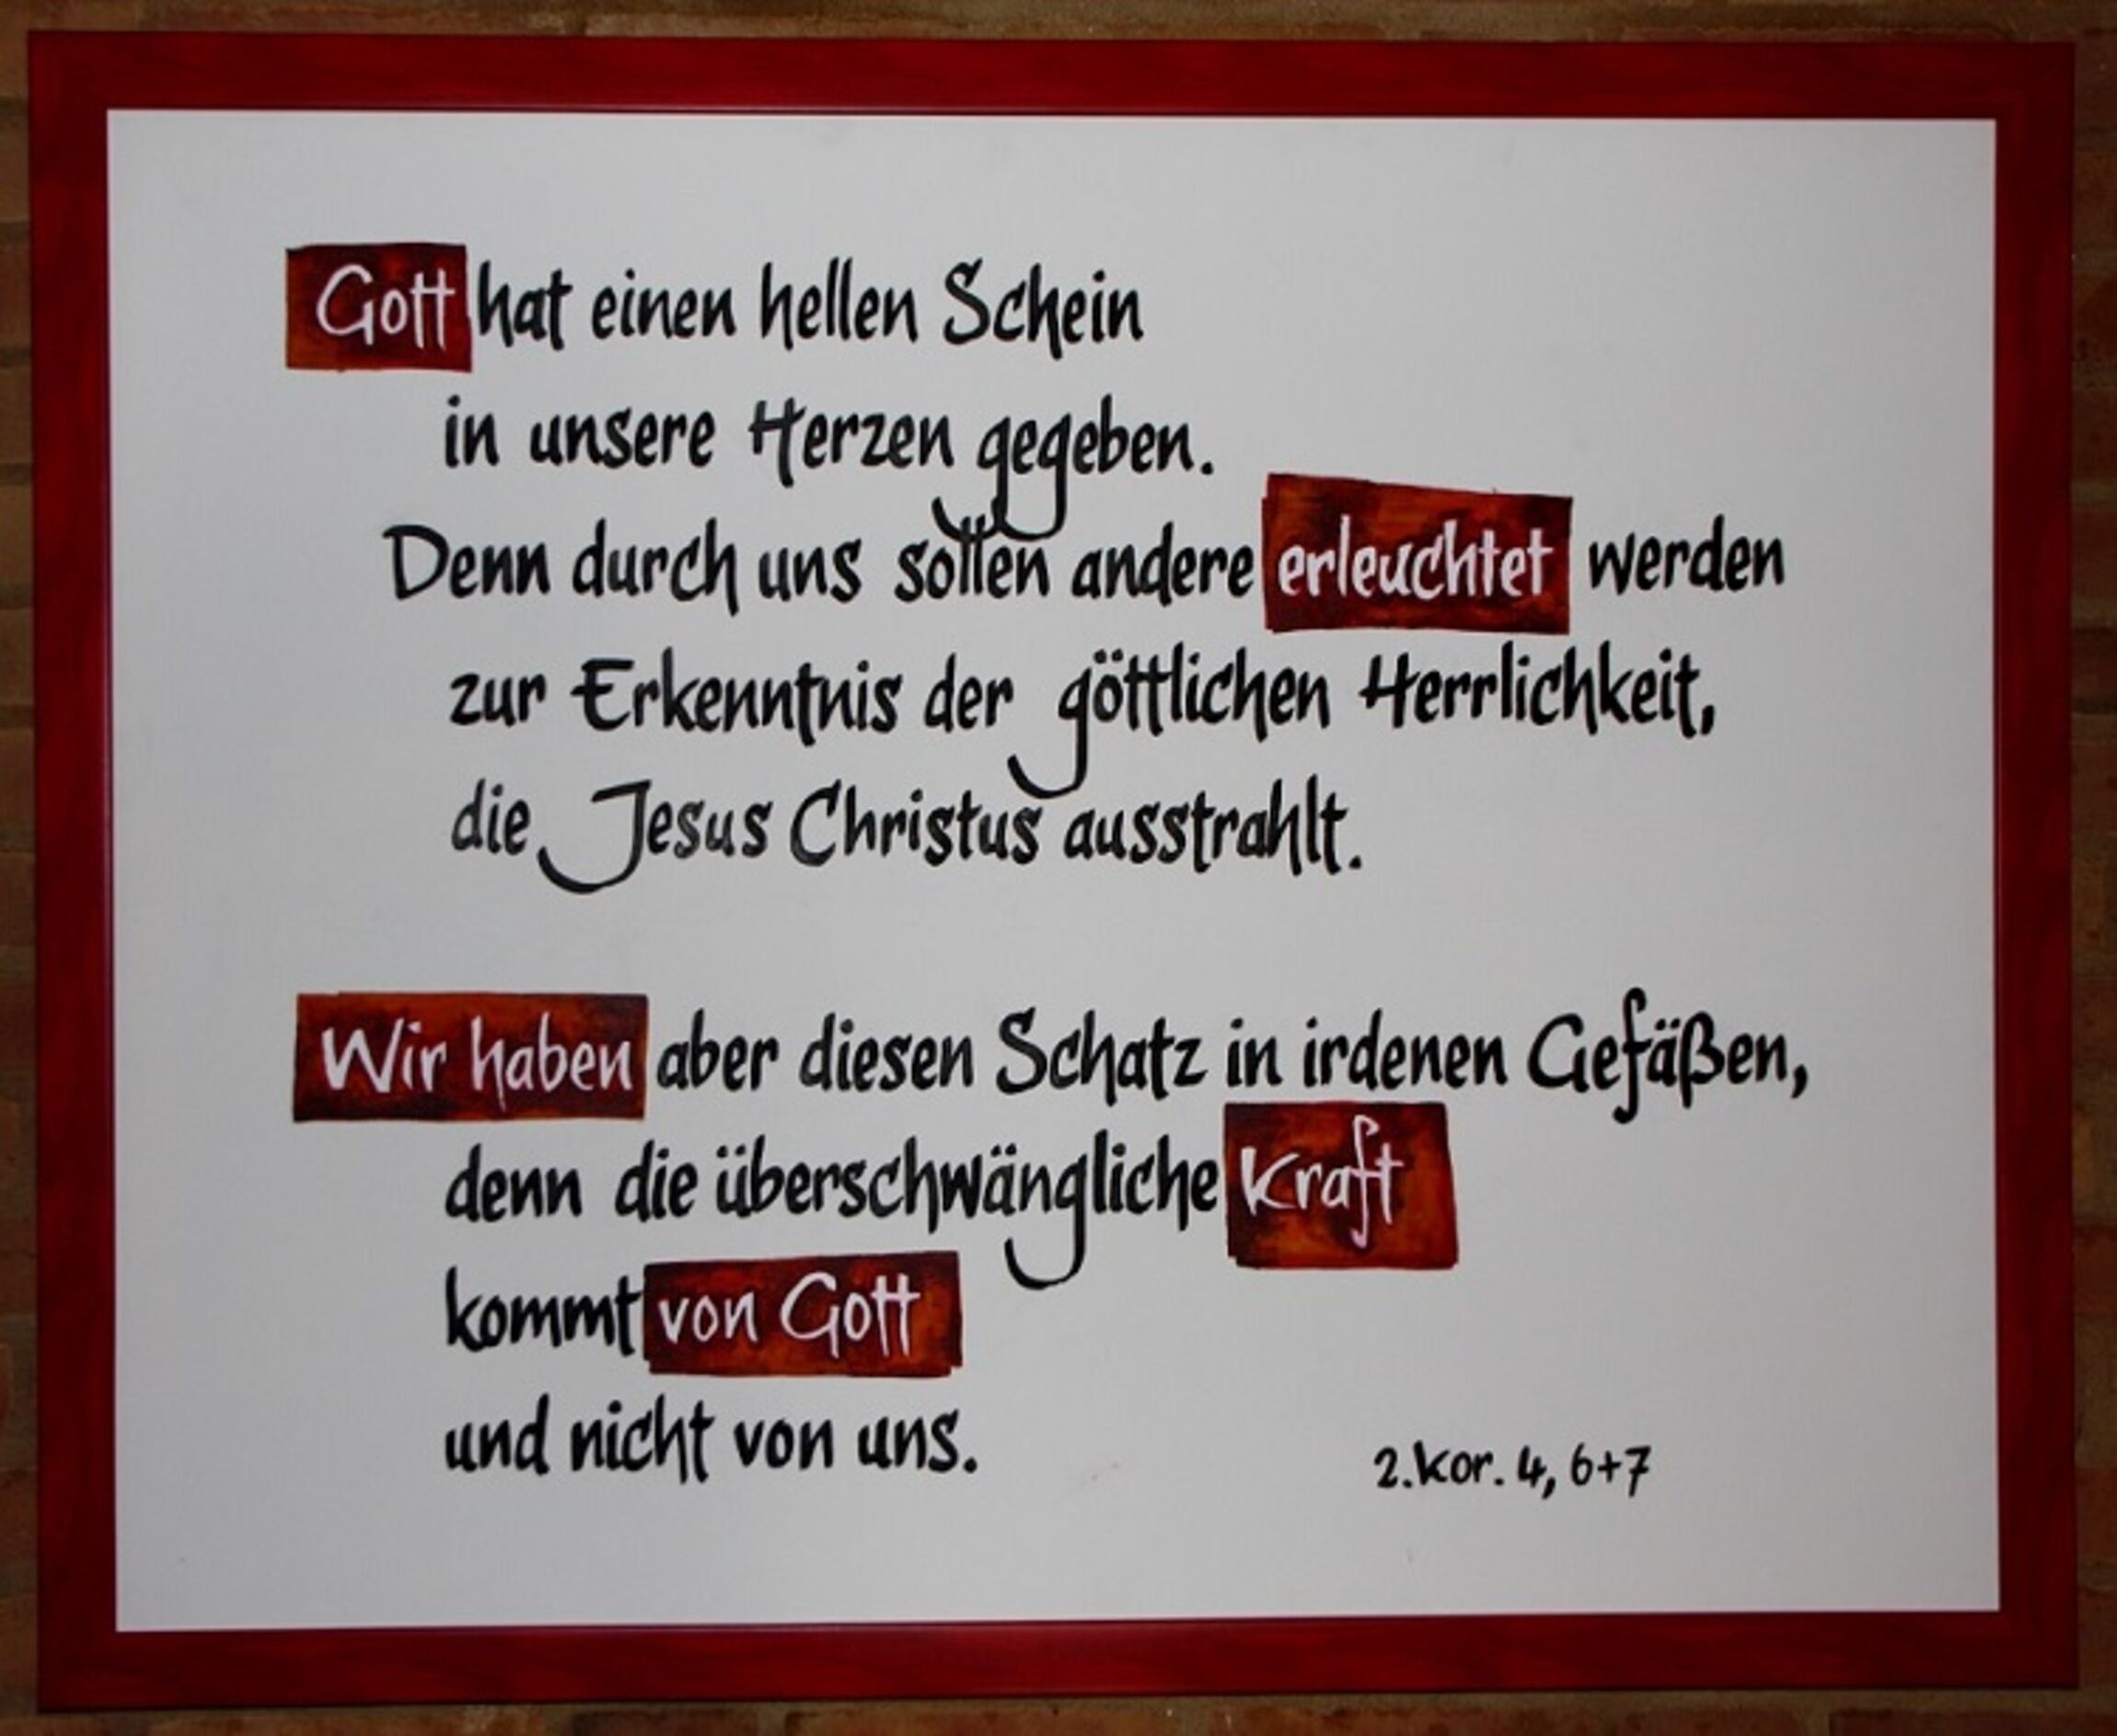 Gott hat einen hellen Schein
in unsere Herzen gegeben.
Denn durch uns sollen andere erleuchtet werden
zur Erkenntnis der göttlichen Herrlichkeit,
die Jesus Christus ausstrahlt.
Wir haben aber diesen Schatz in irdenen Gefäßen,
denn die überschwängliche Kraft
kommt von Gott
und nicht von uns.
2.Kor. 4, 6+7